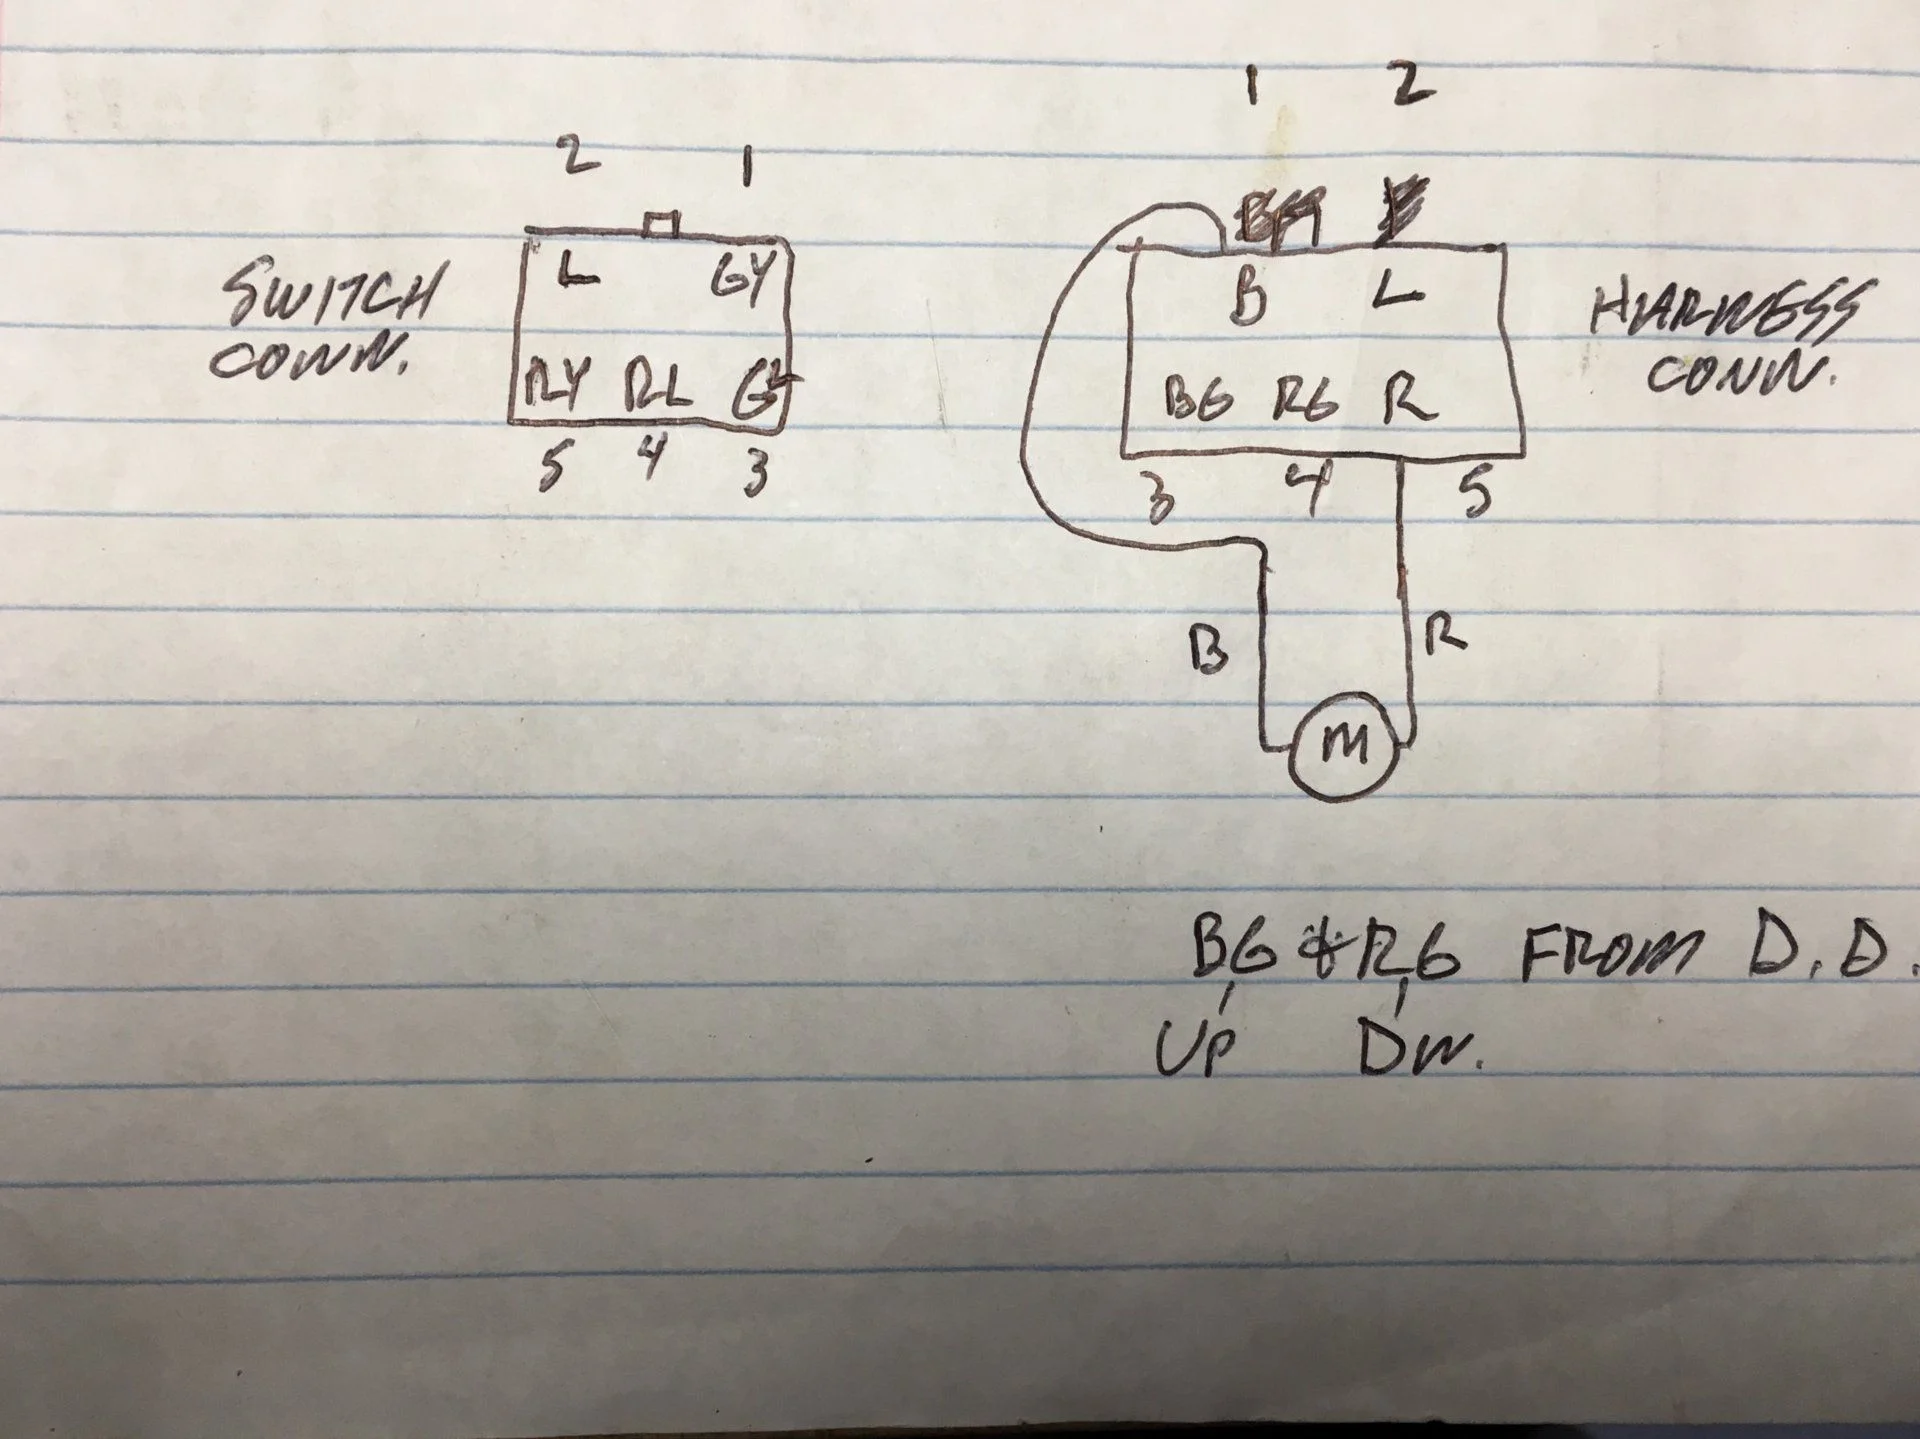 2 1
SWITCH
CONN.
L GY
RY RL GL
5 4 3
1 2
B L
BG RG R
3 4 5
HARNESS
CONN.
B R
M
BG & RG FROM D.D.
UP DW.